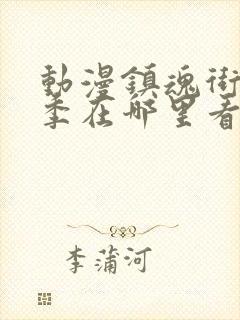 動漫鎮魂街
季在哪里看
李蒲河